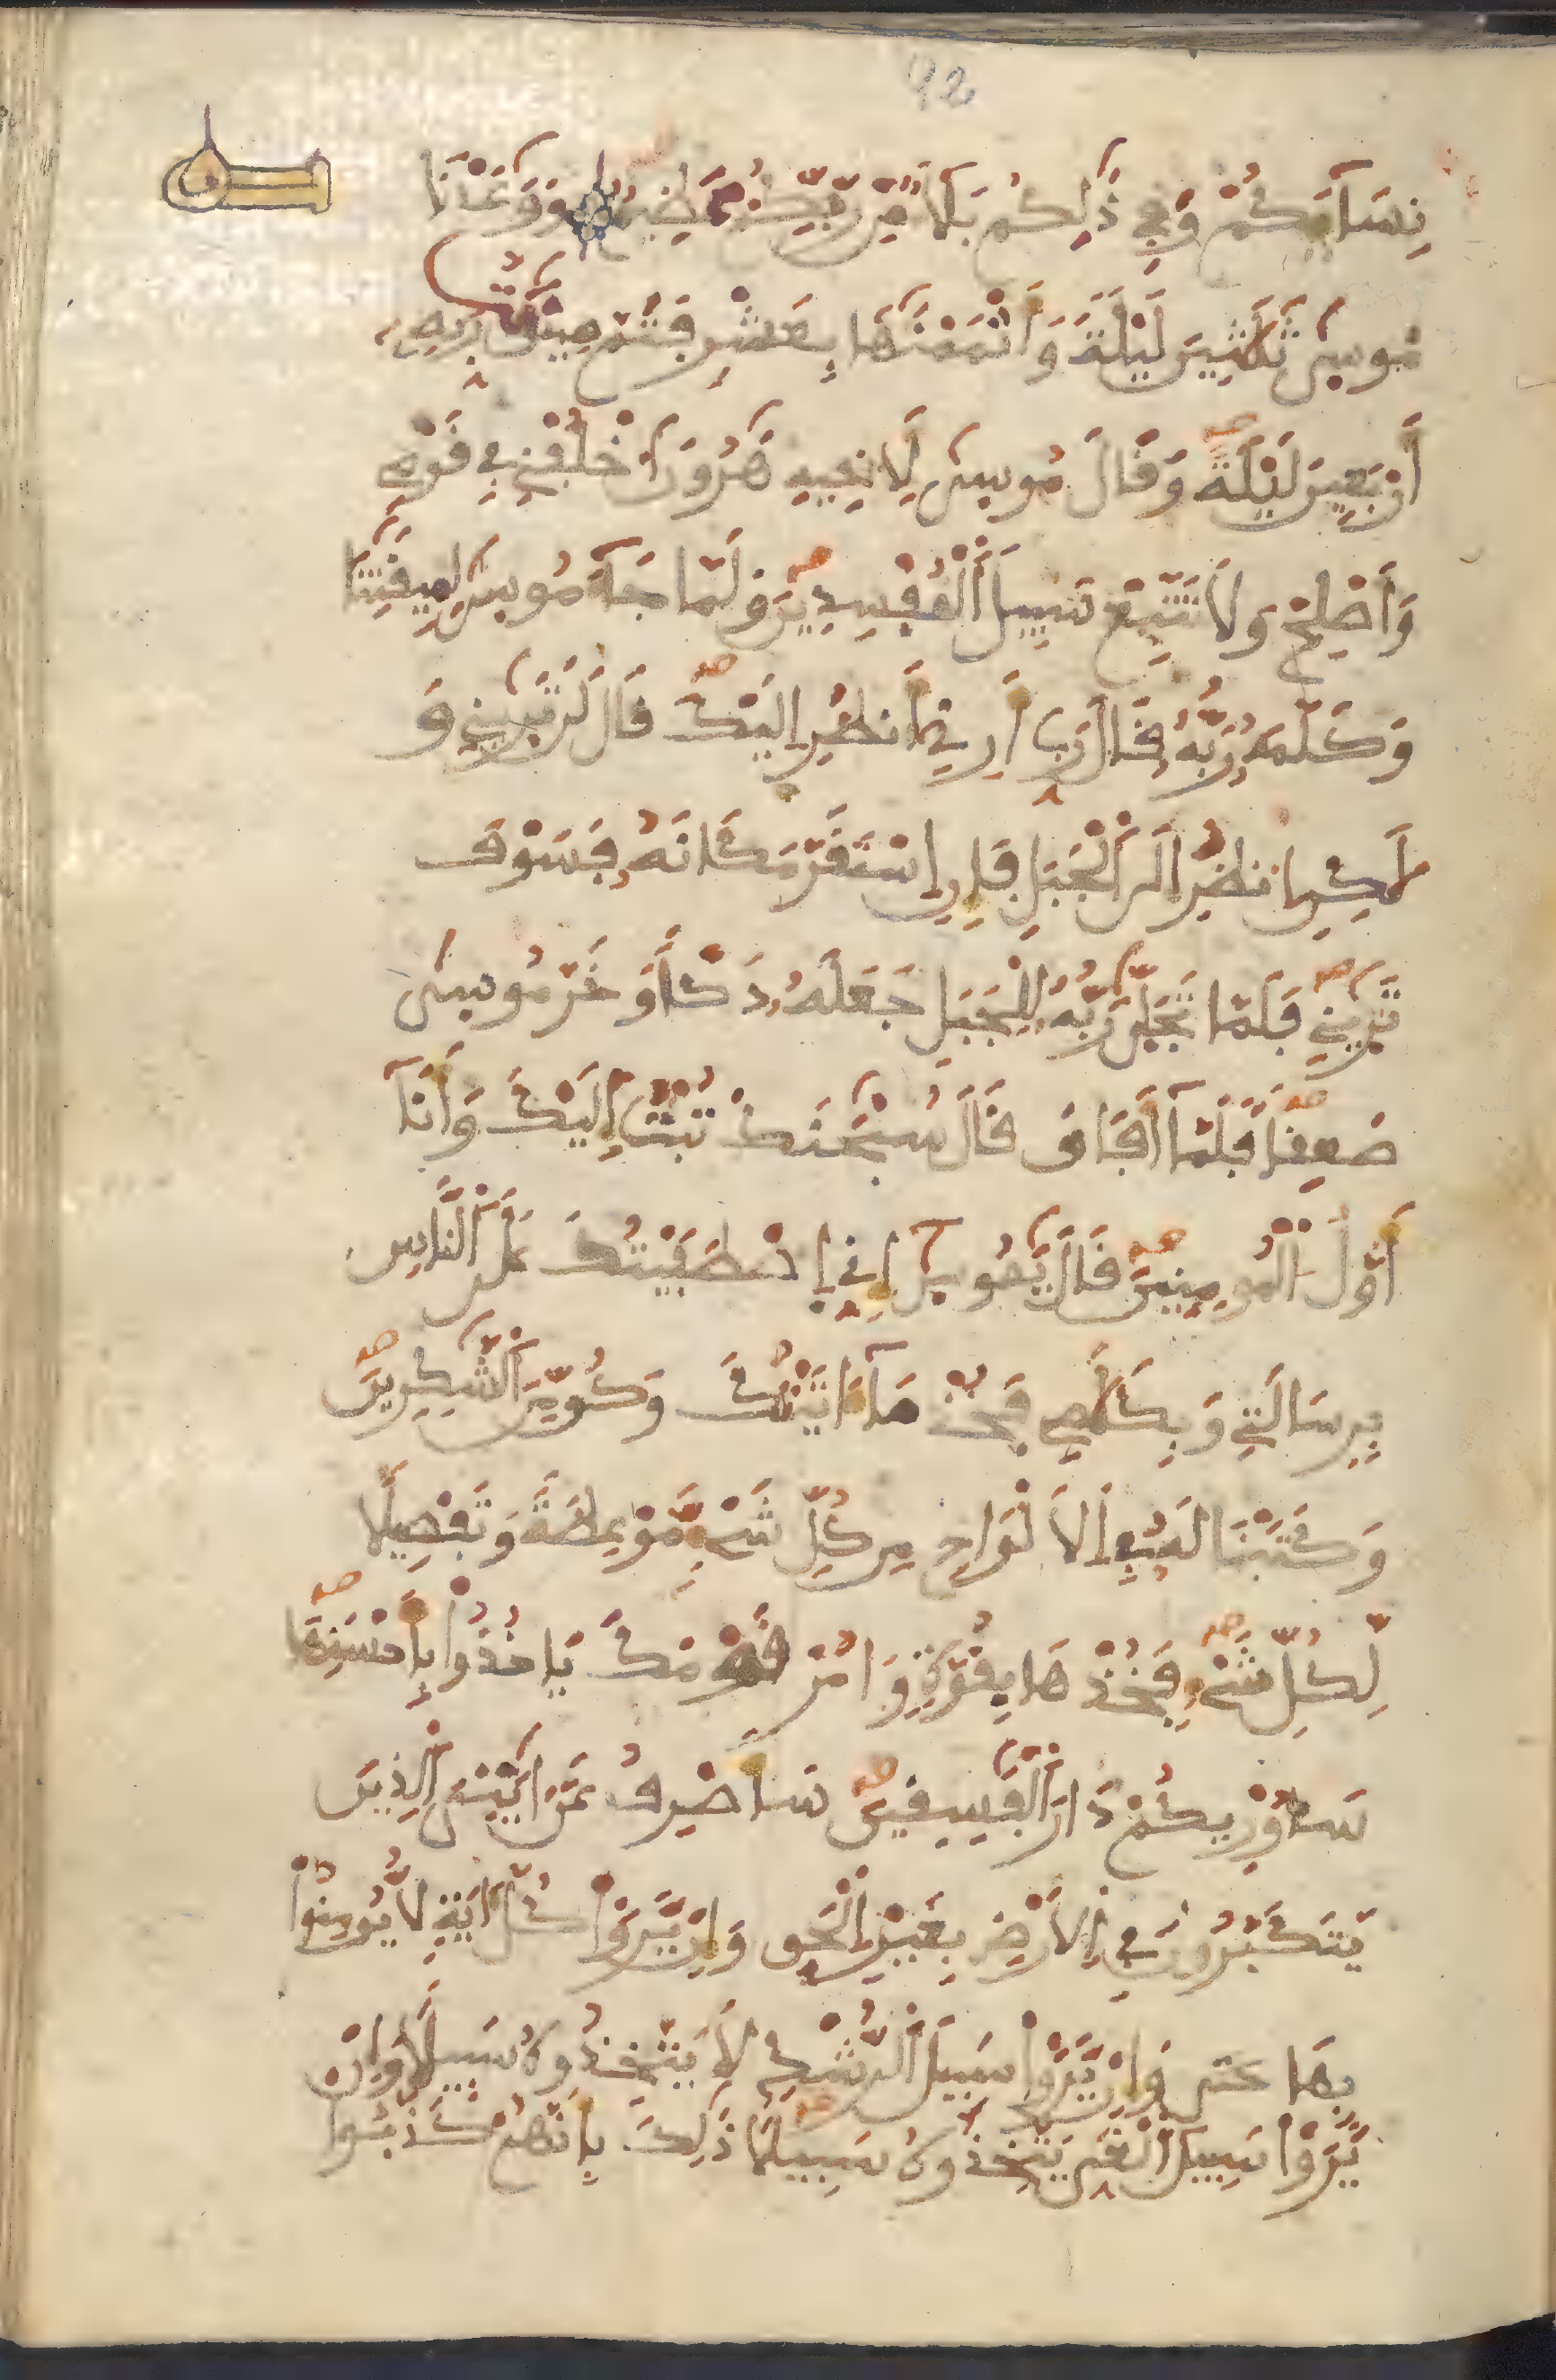 92
نِسَآءَكُمْ وَفِے ذَٰلِكُم بَلَآءٌ مِّن رَّبِّكُمْ عَظِيمٌ وَوَٰعَدْنَا
مُوسَىٰ ثَلَٰثِينَ لَيْلَةً وَأَتْمَمْنَٰهَا بِعَشْرٍ فَتَمَّ مِيقَٰتُ رَبِّهِۦ
أَرْبَعِينَ لَيْلَةً وَقَالَ مُوسَىٰ لِأَخِيهِ هَٰرُونَ اَخْلُفْنِے فِے قَوْمِے
وَأَصْلِحْ وَلَا تَتَّبِعْ سَبِيلَ اَلْمُفْسِدِينَ وَلَمَّا جَآءَ مُوسَىٰ لِمِيقَٰتِنَا
وَكَلَّمَهُۥ رَبُّهُۥ قَالَ رَبِّ أَرِنِے أَنظُرِ اِلَيْكَ قَالَ لَن تَرَىٰنِے وَ
لَٰكِنِ اِنظُرِ اِلَى اَلْجَبَلِ فَإِنِ اِسْتَقَرَّ مَكَانَهُۥ فَسَوْفَ
تَرَىٰنِے فَلَمَّا تَجَلَّىٰ رَبُّهُۥ لِلْجَبَلِ جَعَلَهُۥ دَكّاً وَخَرَّ مُوسَىٰ
صَعِقاً فَلَمَّآ أَفَاقَ قَالَ سُبْحَٰنَكَ تُبْتُ إِلَيْكَ وَأَنَآ
أَوَّلُ اُلْمُومِنِينَ قَالَ يَٰمُوسَىٰٓ إِنِّے اِصْطَفَيْتُكَ عَلَى اَلنَّاسِ
بِرِسَالَتِے وَبِكَلَٰمِے فَخُذْ مَآ ءَاتَيْتُكَ وَكُن مِّنَ اَلشَّٰكِرِينَ
وَكَتَبْنَا لَهُۥ فِے اِلَالْوَاحِ مِن كُلِّ شَےْءٍ مَّوْعِظَةً وَتَفْصِيلًا
لِّكُلِّ شَےْءٍ فَخُذْهَا بِقُوَّةٍ وَامُرْ قَوْمَكَ يَاخُذُواْ بِأَحْسَنِهَا
سَأُوْرِيكُمْ دَارَ اَلْفَٰسِقِينَ سَأَصْرِفُ عَنَ اٰيَٰتِيَ اَلذِينَ
يَتَكَبَّرُونَ فِے اِلَارْضِ بِغَيْرِ اِلْحَقِّ وَإِن يَّرَوْاْ كُلَّ ءَايَةٍ لَّا يُومِنُواْ
بِهَا حتى وَإِن يَّرَوْاْ سَبِيلَ اَلرُّشْدِ لَا يَتَّخِذُوهُ سَبِيلًا وَإِنْ
يَّرَوْاْ سَبِيلَ اَلْغَيِّ يَتَّخِذُوهُ سَبِيلًا ذَٰلِكَ بِأَنَّهُمْ كَذَّبُوا